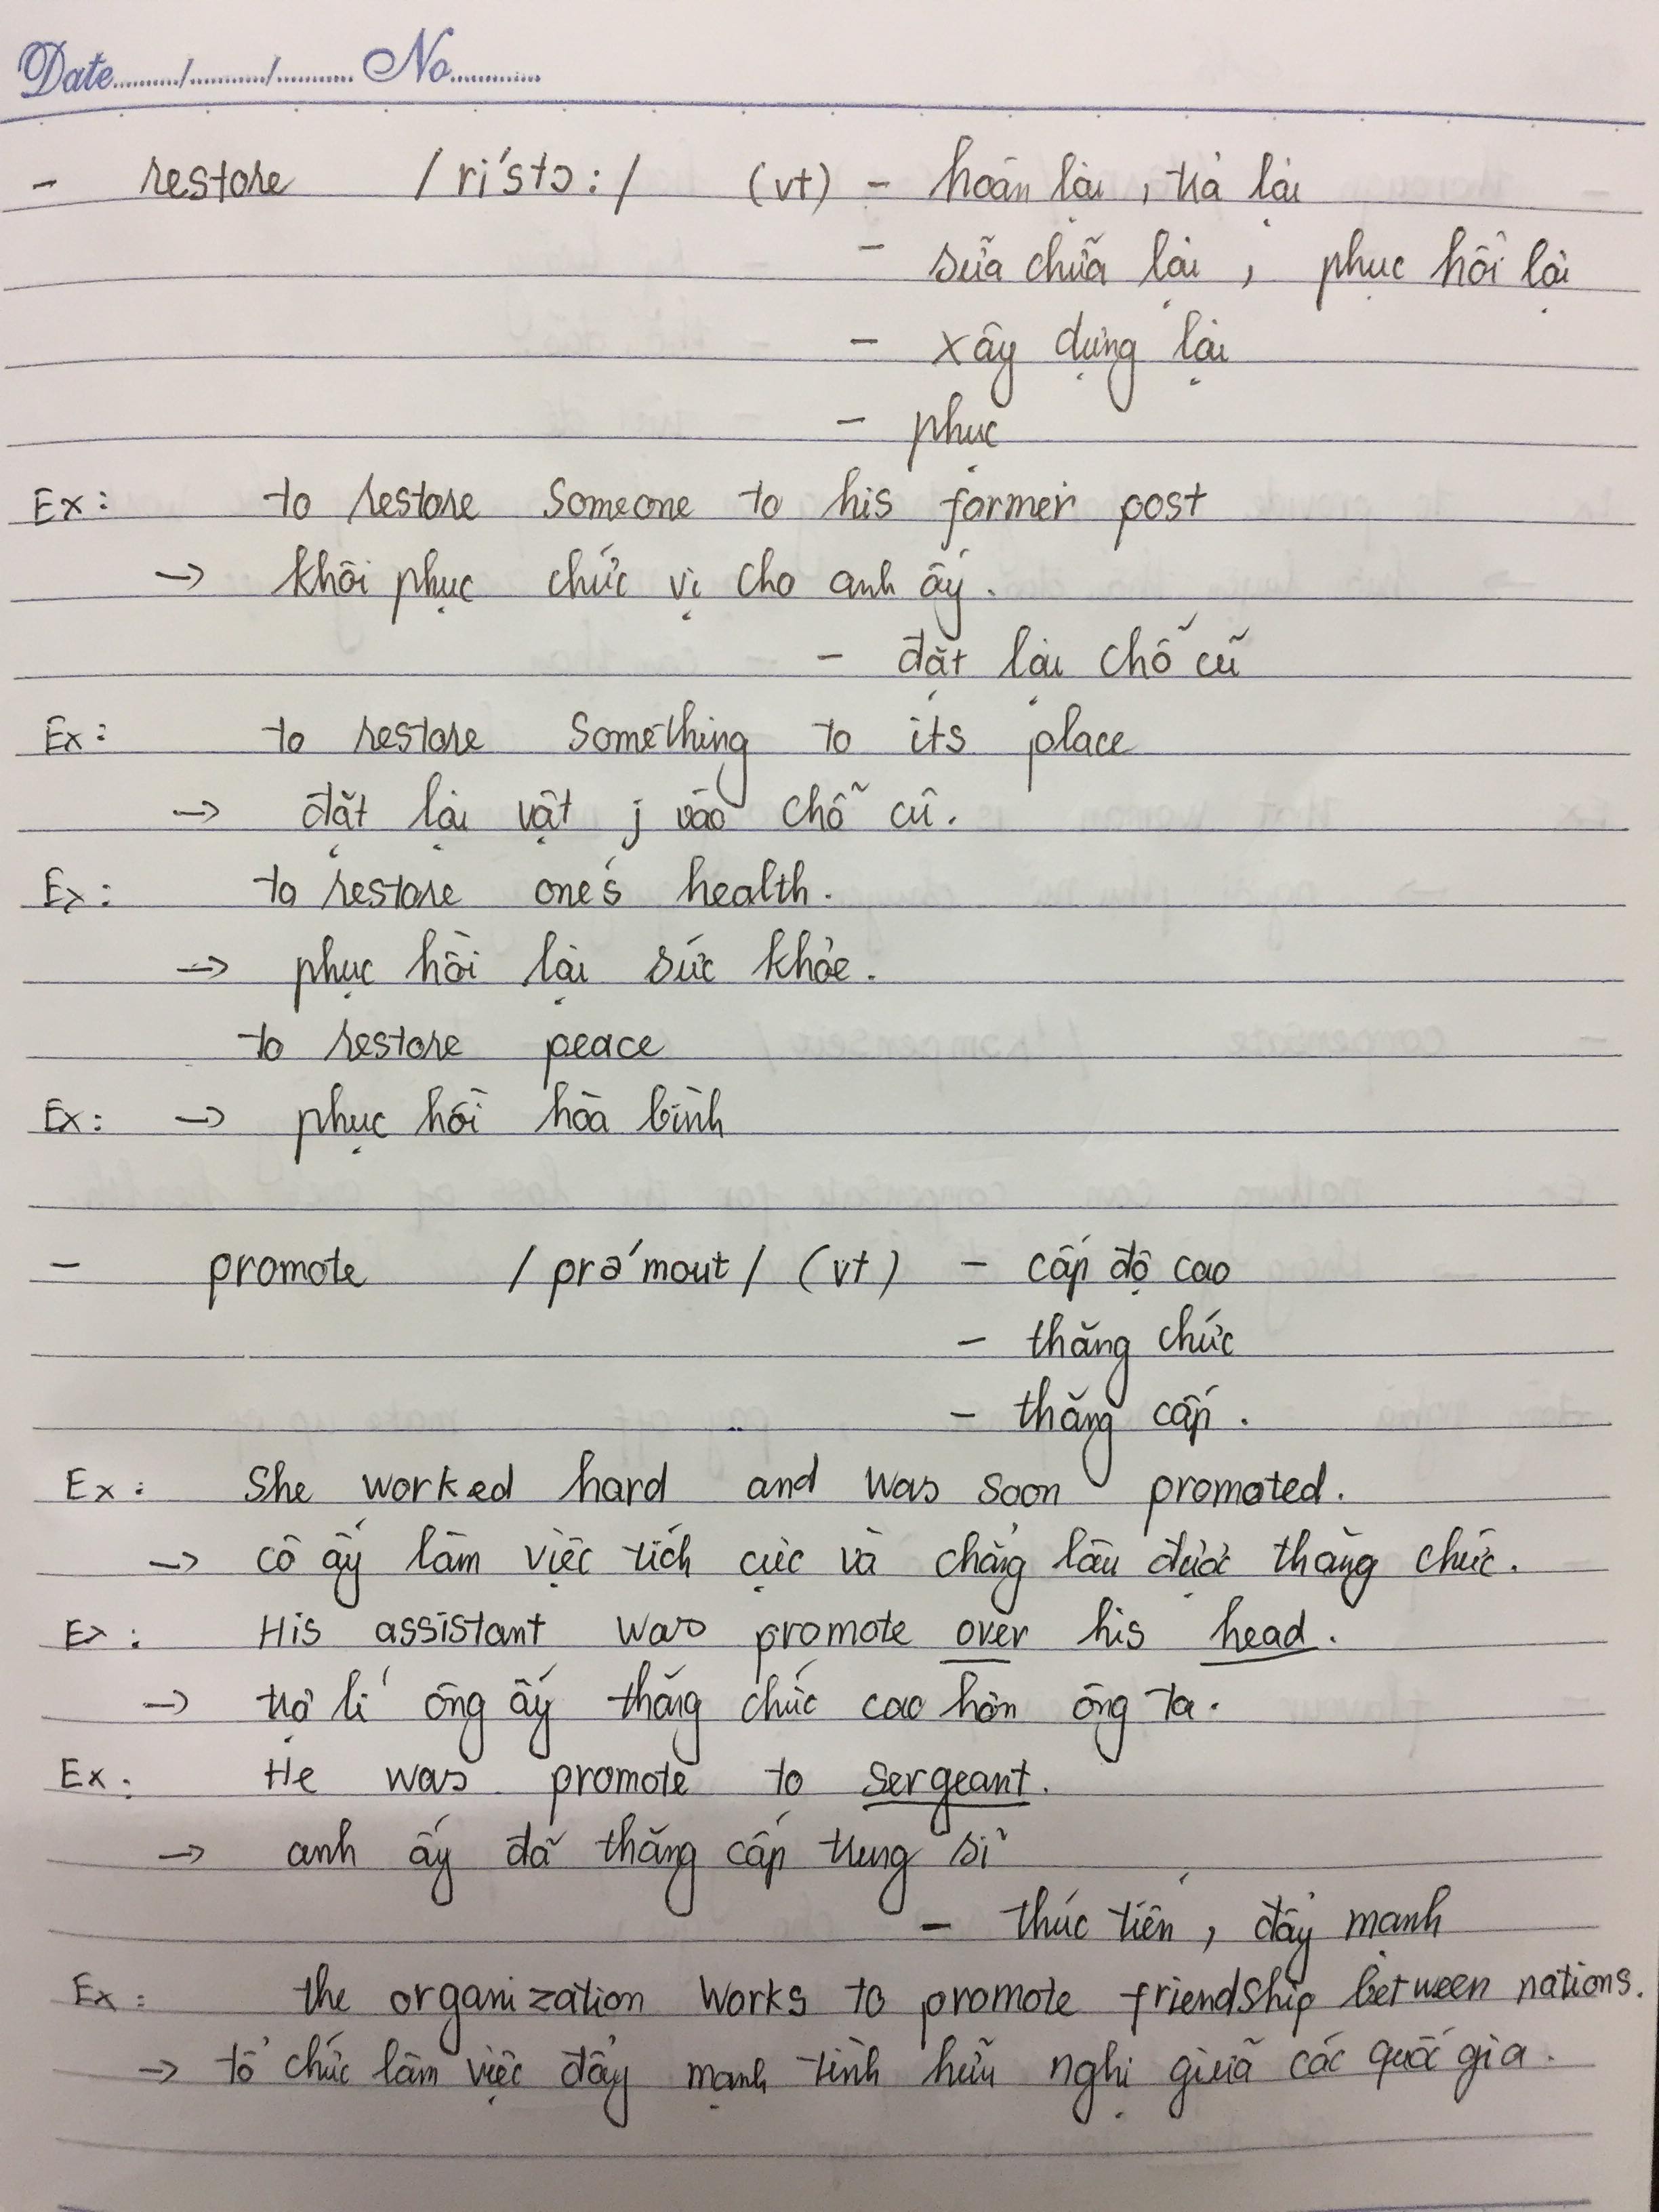 Date........./........../.......... No............
- restore /ri'stɔ:/ (vt) - hoàn lại, trả lại
- sữa chữa lại, phục hồi lại
- xây dựng lại
- phục
Ex: to restore someone to his former post
→ khôi phục chức vị cho anh ấy.
- đặt lại chỗ cũ
Ex: to restore something to its place
→ đặt lại vật j vào chỗ cũ.
Ex: to restore one's health.
→ phục hồi lại sức khỏe.
to restore peace
Ex: → phục hồi hòa bình
- promote /prə'mout/ (vt) - cấp độ cao
- thăng chức
- thăng cấp.
Ex: She worked hard and was soon promoted.
→ cô ấy làm việc tích cực và chẳng lâu được thăng chức.
Ex: His assistant was promote over his head.
→ trợ lí ông ấy thăng chức cao hơn ông ta.
Ex. He was promote to sergeant.
→ anh ấy đã thăng cấp trung sĩ
- thúc tiến, đẩy mạnh
Ex: the organization works to promote friendship between nations.
→ tổ chức làm việc đẩy mạnh tình hữu nghị giữa các quốc gia.